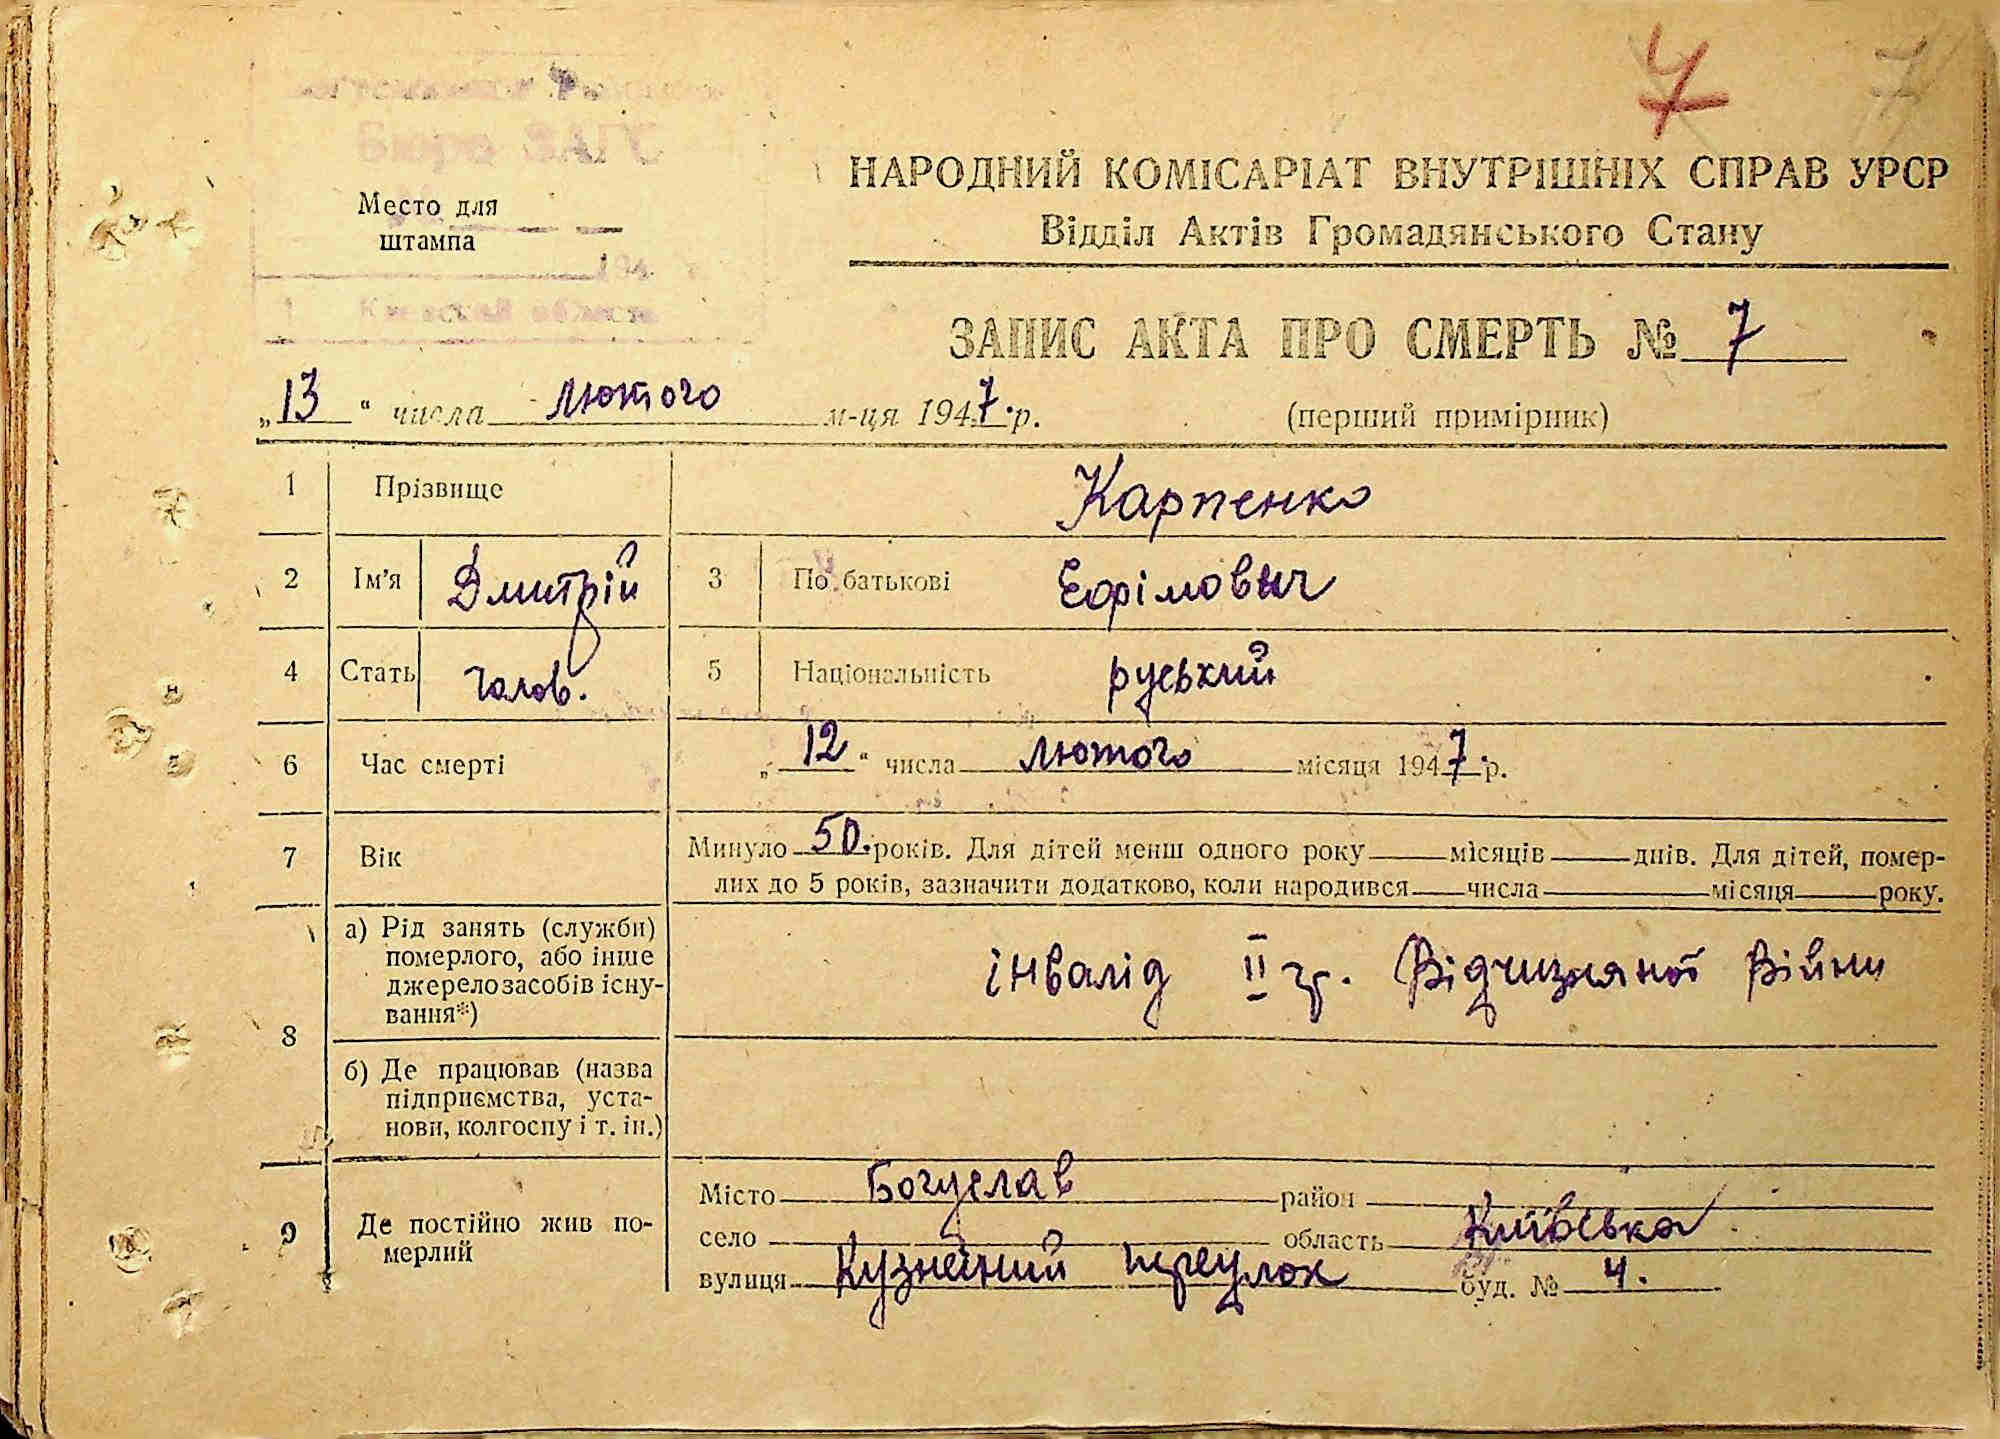 7 7
Бюро ЗАГС
Место для
штампа
194
Киевской области
НАРОДНИЙ КОМІСАРІАТ ВНУТРІШНІХ СПРАВ УРСР
Відділ Актів Громадянського Стану
ЗАПИС АКТА ПРО СМЕРТЬ № 7
„13“ числа лютого м-ця 1947 р. (перший примірник)
1 Прізвище Карпенко
2 Ім'я Дмитрій 3 По батькові Ефімович
4 Стать чолов. 5 Національність руський
6 Час смерті „12“ числа лютого місяця 1947 р.
7 Вік Минуло 50 років. Для дітей менш одного року місяців днів. Для дітей, помер-
лих до 5 років, зазначити додатково, коли народився числа місяця року.
8 а) Рід занять (служби)
померлого, або інше
джерело засобів існу-
вання*) інвалід II гр. Відчизняної Війни
б) Де працював (назва
підприємства, уста-
нови, колгоспу і т. ін.)
9 Де постійно жив по-
мерлий
Місто Богуслав район
село область Київська
вулиця Кузнечний переулок буд. № 4.